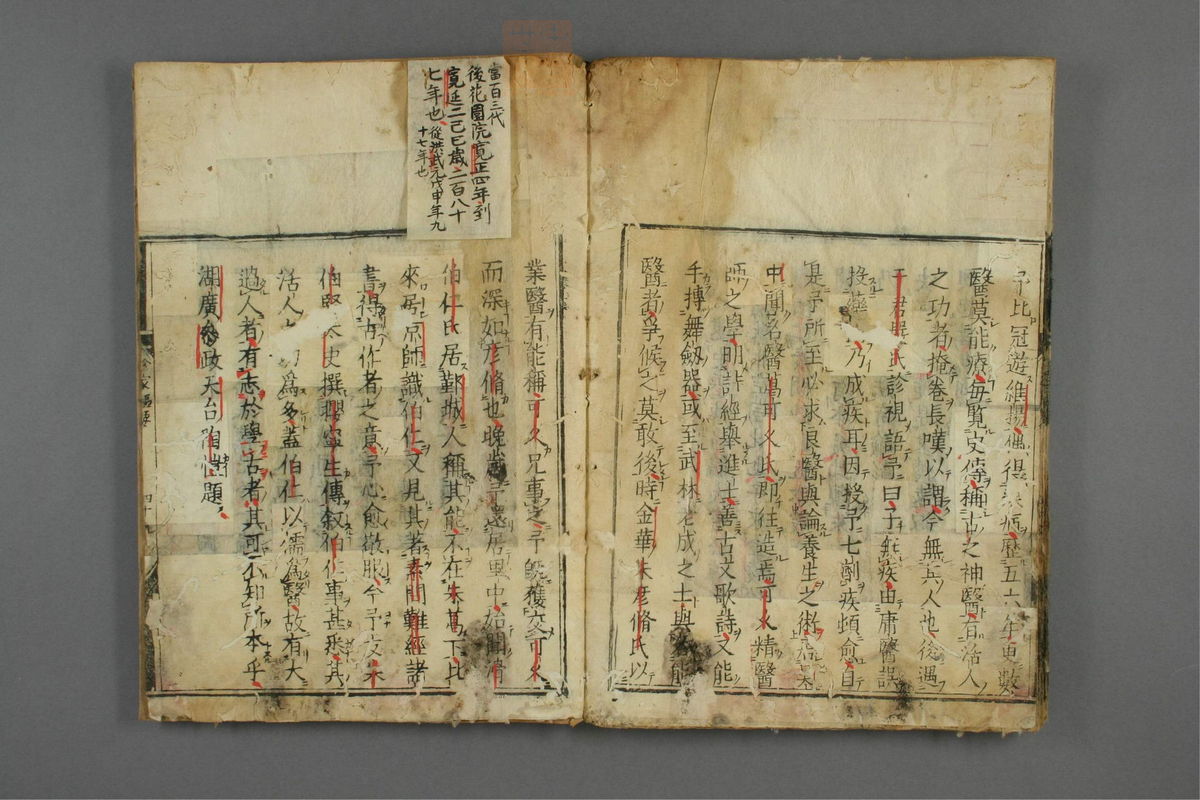 予比冠遊維揚偶得末疾歷五六年更數
醫莫能療每覧史傳稱古之神醫有活人
之功者掩卷長嘆以謂今無其人也後遇
于君 氏診視語予曰子無疾由庸醫誤
投藥 乃成疾耳因授予七劑疾頓愈自
是予所至必求良醫與論養生之術 在
中聞名醫葛可久氏即往造焉可久精醫
師之學明 經舉進士善古文歌詩又能
手搏舞劔器或至武林老成之士與 能
醫者爭候之莫敢後時金華朱彦脩氏以
業醫有能稱可久兄事之予既獲交可久
而深如彦脩也晚歲予還居里中始聞滑
伯仁氏居鄞城人稱其能不在朱葛下比
來居京師識伯仁又見其著素問難經諸
書得古作者之意予心愈敬服今予友朱
伯賢太史撰攖寧生傳叙伯仁事甚悉其
活人 功為多蓋伯仁以儒為醫故有大
過人者有志於學古者其可不知所本乎
湖廣叅政天台陶 題
當百三代
後花園院寛正四年到
寛延二己巳歳二百八十
七年也從洪武元戊申年九
十七年也